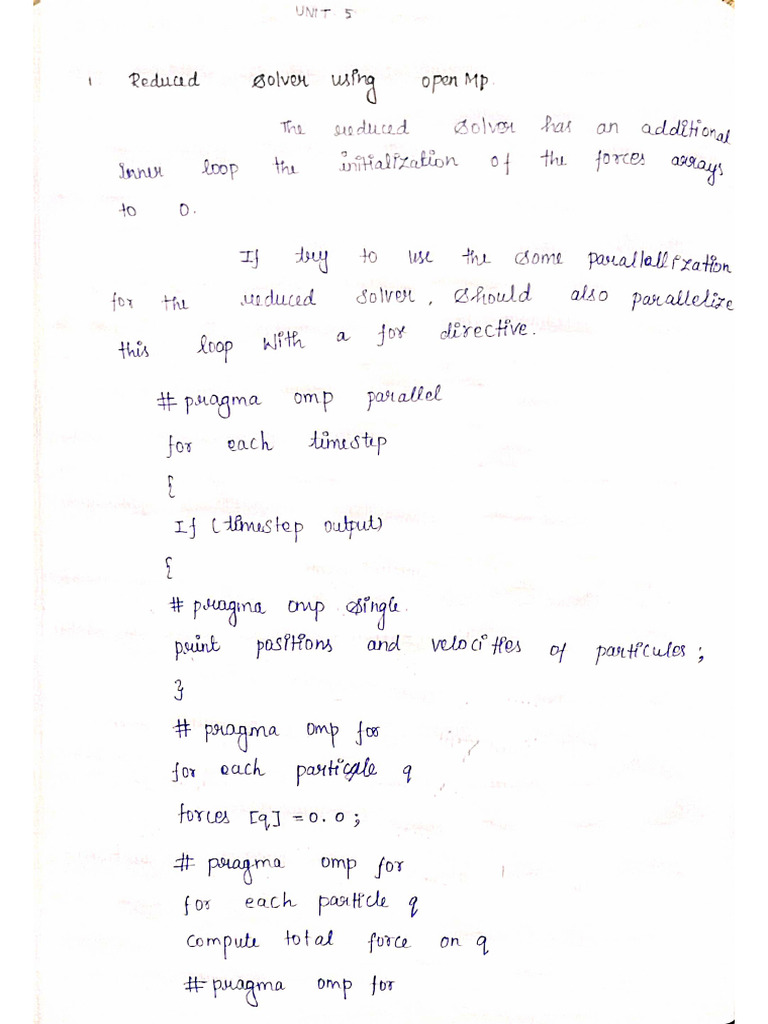 UNIT 5
1 Reduced Solver using open Mp.
The reduced Solver has an additional
Inner loop the initialization of the forces arrays
to 0.
If try to use the some parallallization
for the reduced solver, Should also parallelize
this loop With a for directive.
# pragma omp parallel
for each timestep
{
If (timestep output)
{
# pragma omp single.
print positions and velocities of particules;
}
# pragma omp for
for each particle q
forces [q] = 0.0;
# pragma omp for
for each particle q
compute total force on q
# pragma omp for